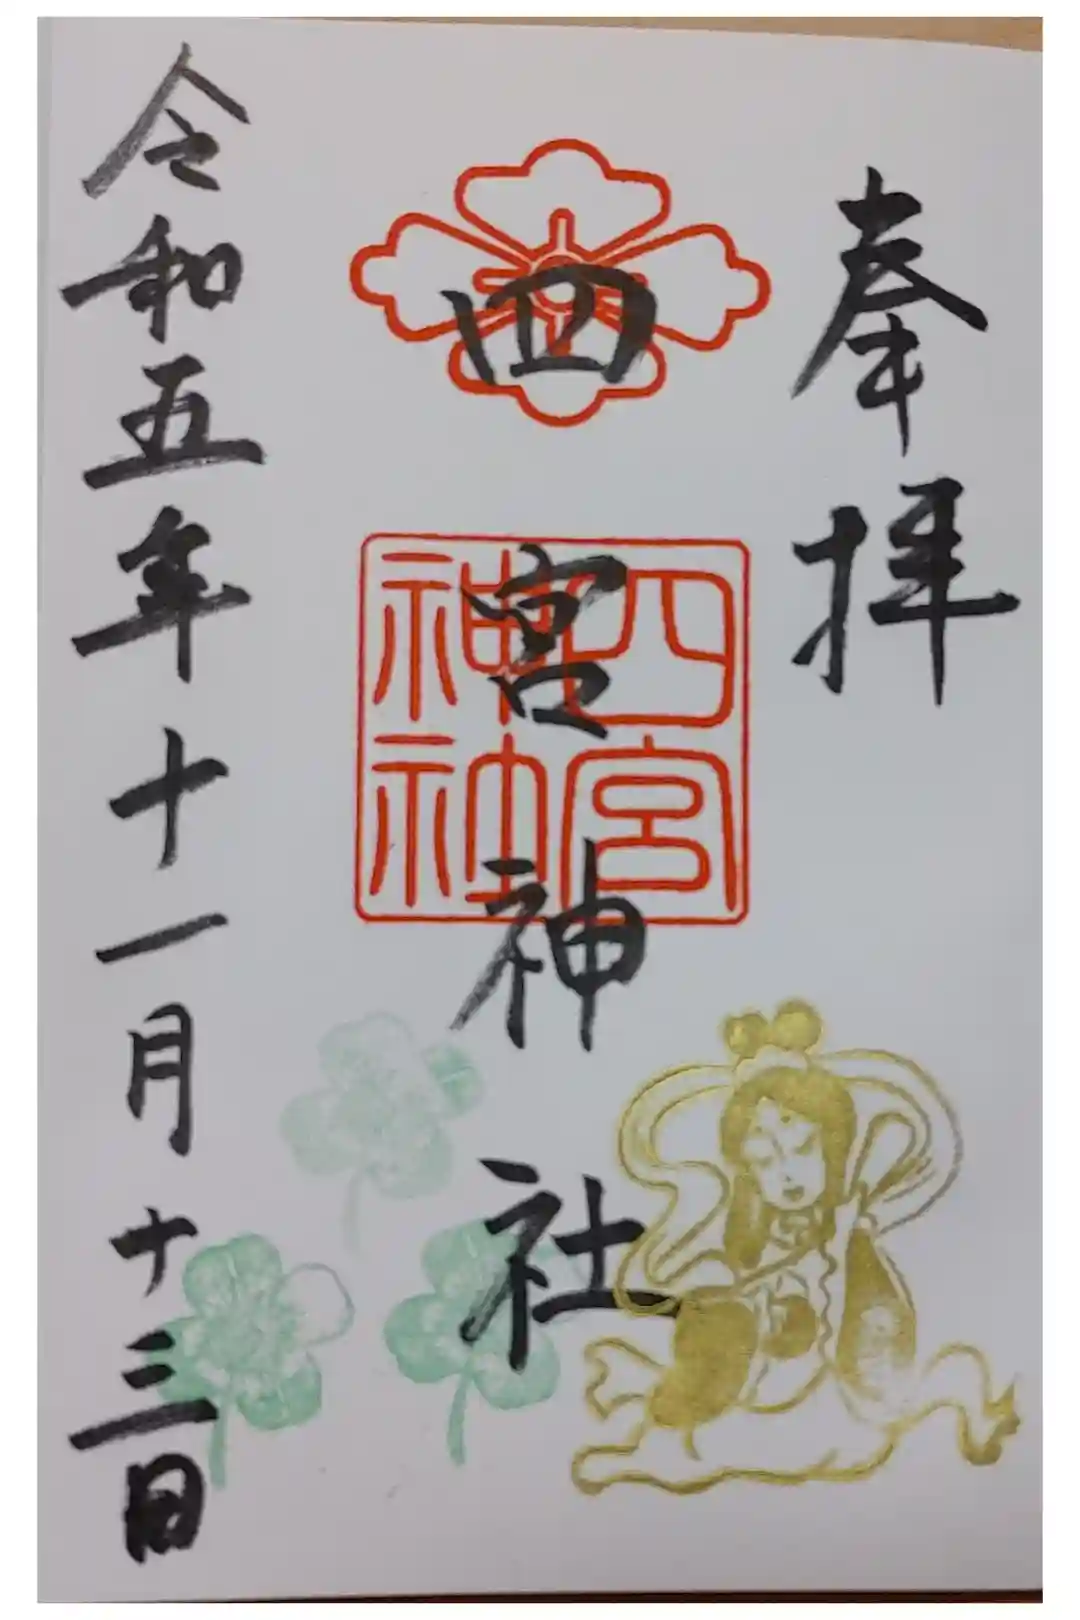 奉拝
四宮神社
四宮神社
令和五年十一月十三日